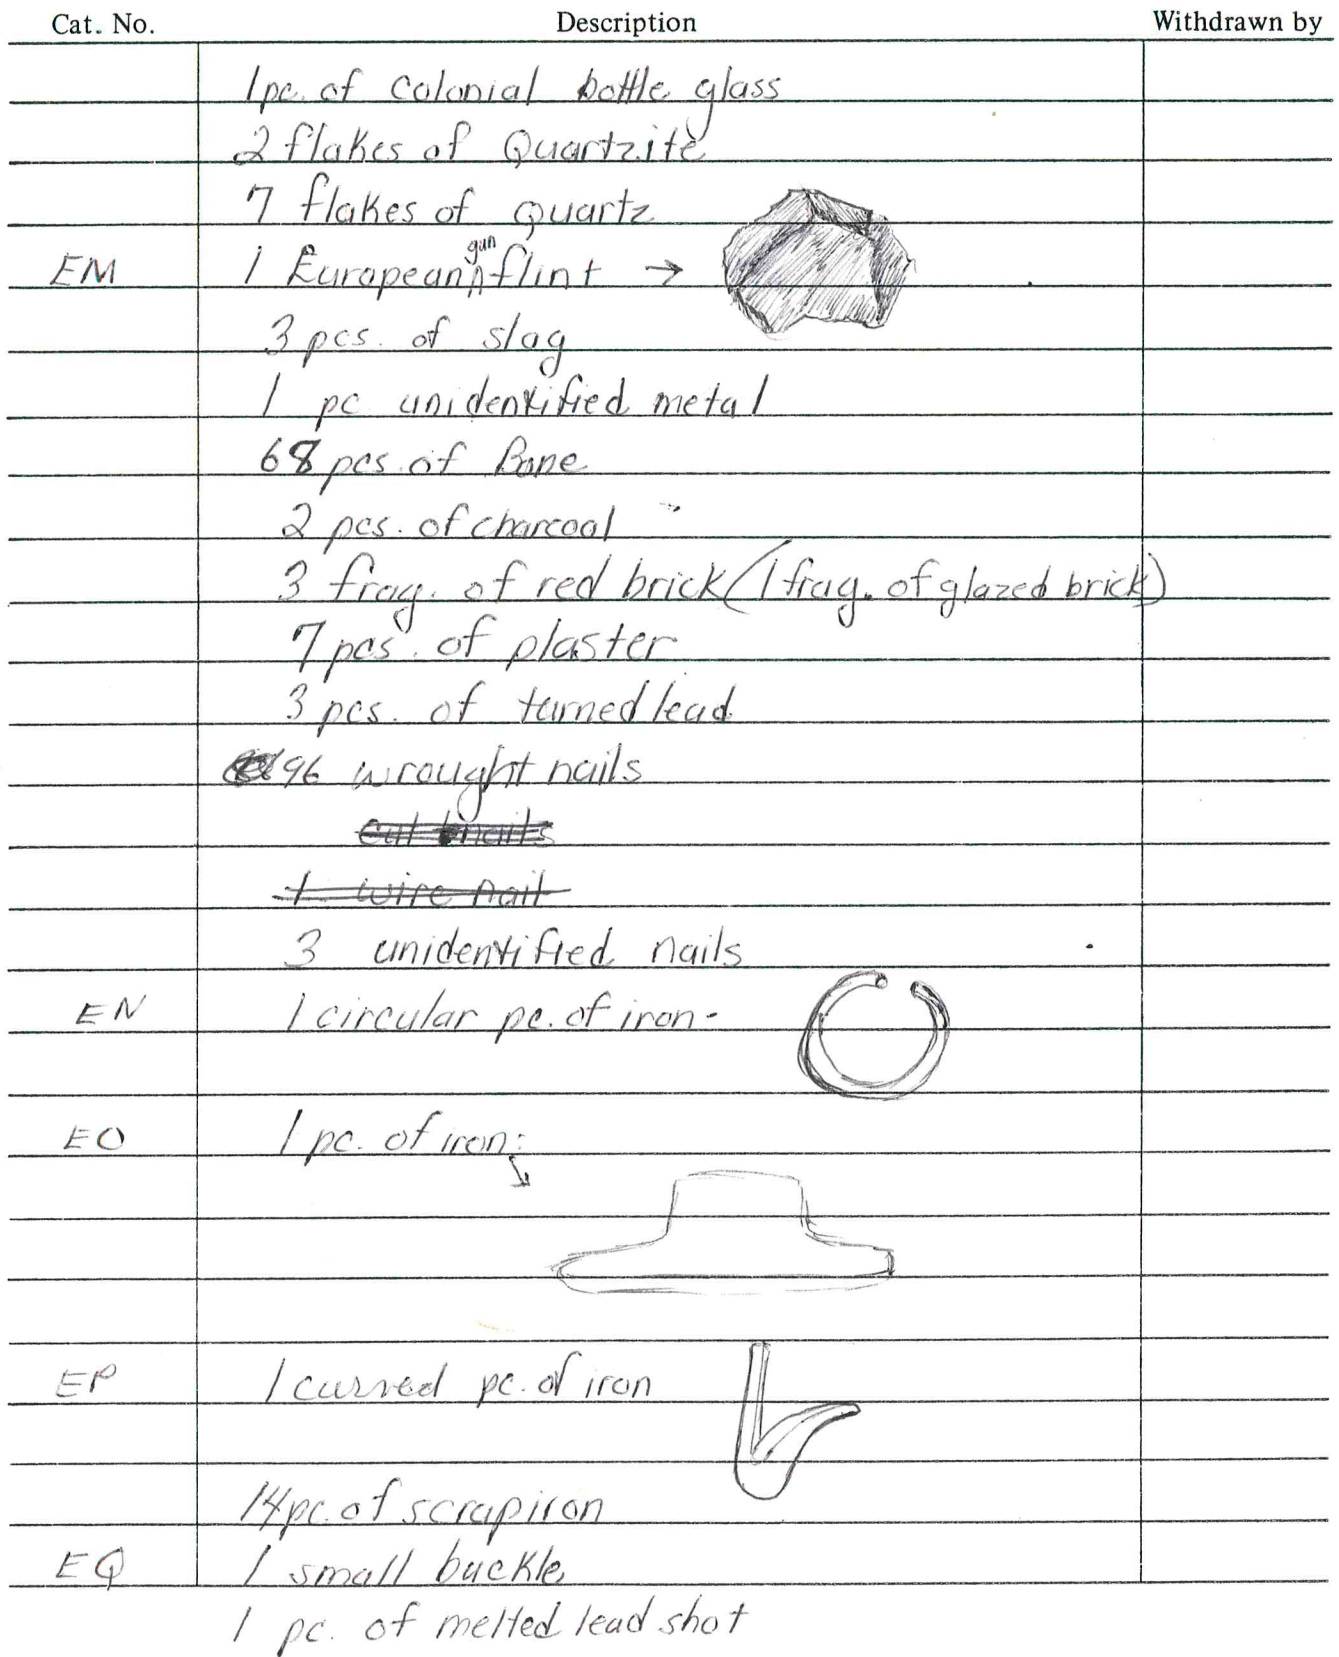 Cat. No. Description Withdrawn by
1 pc. of colonial bottle glass
2 flakes of Quartzite
7 flakes of quartz
EM 1 European gun flint →
3 pcs. of slag
1 pc unidentified metal
68 pcs. of Bone
2 pcs. of charcoal
3 frag. of red brick (1 frag. of glazed brick)
7 pcs. of plaster
3 pcs. of turned lead
96 wrought nails
cut nails
1 wire nail
3 unidentified nails
EN 1 circular pc. of iron-
EO 1 pc. of iron:
EP 1 curved pc. of iron
14 pc. of scrap iron
EQ 1 small buckle
1 pc. of melted lead shot